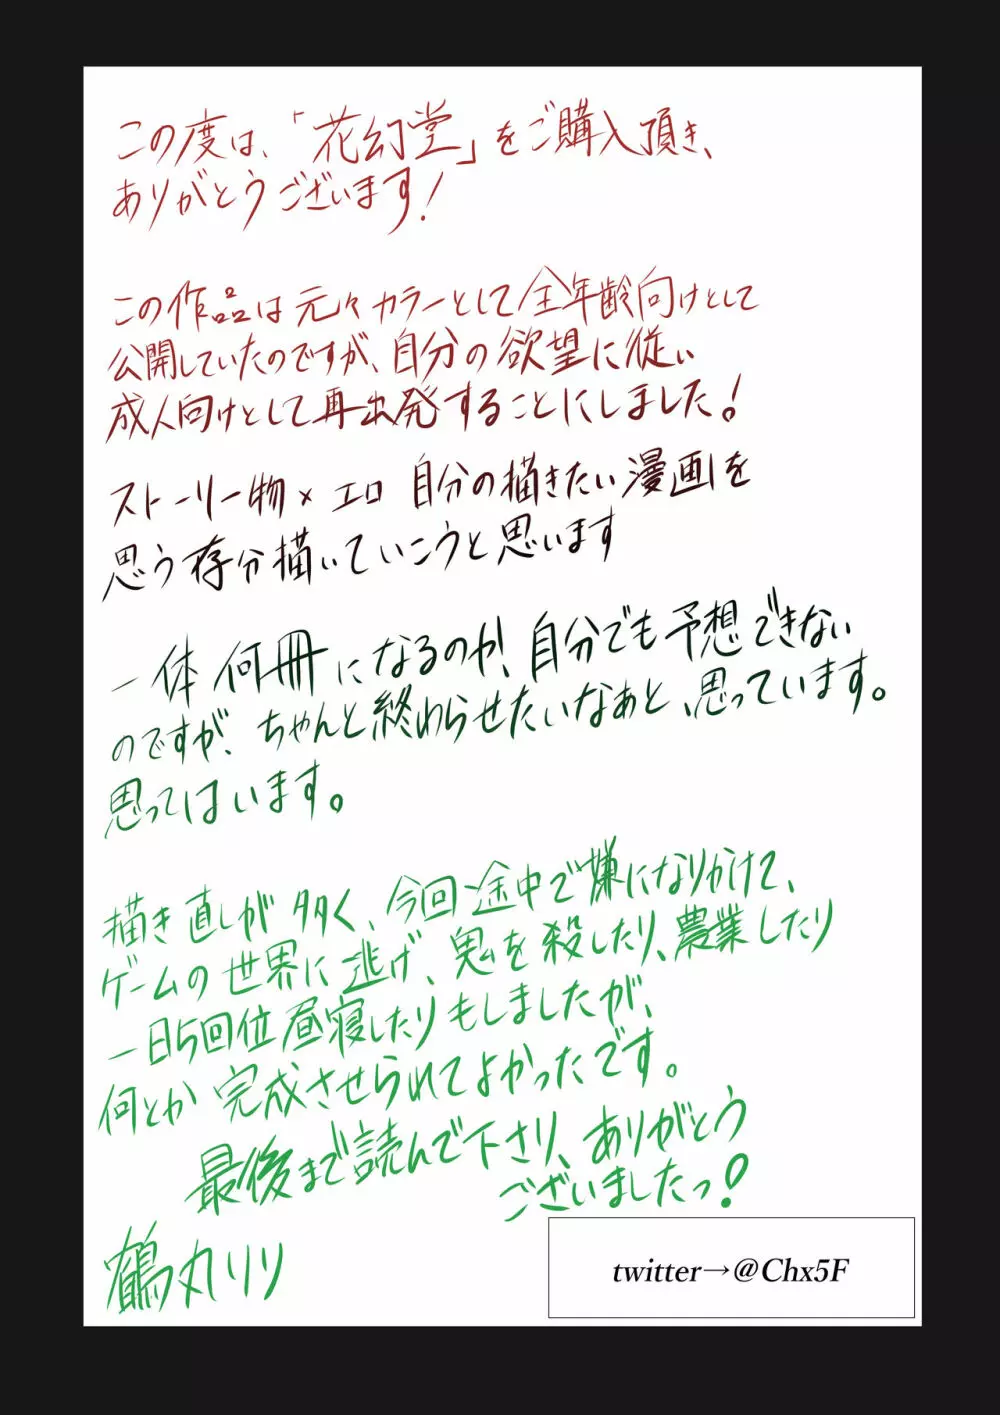 この度は、「花幻堂」をご購入頂き、
ありがとうございます!
この作品は元々カラーとして全年齢向けとして
公開していたのですが、自分の欲望に従い
成人向けとして再出発することにしました!
ストーリー物×エロ 自分の描きたい漫画を
思う存分描いていこうと思います
一体何冊になるのか、自分でも予想できない
のですが、ちゃんと終わらせたいなぁと、思っています。
思ってはいます。
描き直しが多く、今回途中で嫌になりかけて、
ゲームの世界に逃げ、鬼を殺したり、農業したり
一日5回位昼寝したりもしましたが、
何とか完成させられてよかったです。
最後まで読んで下さり、ありがとう
ございましたっ!
鶴丸リリ
twitter→@Chx5F